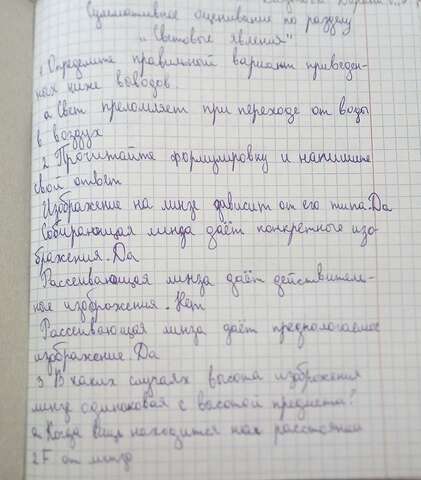 Суммативное оценивание по разделу
"Световые явления"
1. Определите правильный вариант приведен-
ных ниже выводов.
а. Свет преломляет при переходе от воды
в воздух
2. Прочитайте формулировку и напишите
свой ответ
Изображение на линзе зависит от его типа. Да
Собирающая линза даёт конкретные изо-
бражения. Да
Рассеивающая линза даёт действитель-
ное изображения. Нет
Рассеивающая линза даёт предпологаемое
изображение. Да
3. В каких случаях высота изображения
линзе одинаковая с высотой предмета?
а. Когда вещь находится на расстоянии
2F от линзы